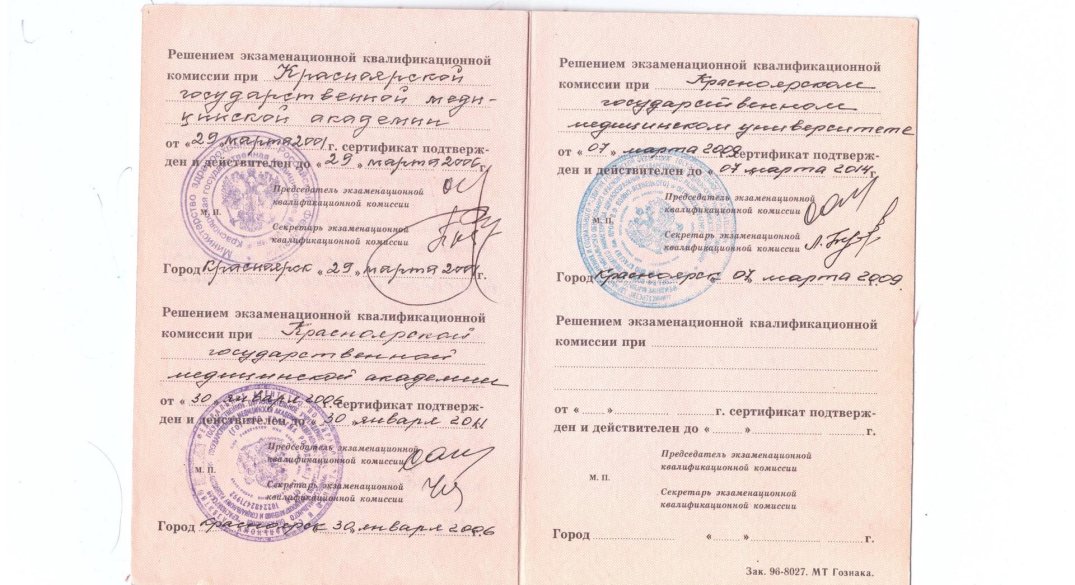 Решением экзаменационной квалификационной
комиссии при Красноярской
государственной меди-
цинской академии
от «29» марта 2001 г. сертификат подтверж-
ден и действителен до «29» марта 2006 г.
Председатель экзаменационной
квалификационной комиссии
М. П.
Секретарь экзаменационной
квалификационной комиссии
Город Красноярск «29» марта 2001 г.
Решением экзаменационной квалификационной
комиссии при Красноярской
государственной
медицинской академии
от «30» января 2006 г. сертификат подтверж-
ден и действителен до «30» января 2011
Председатель экзаменационной
квалификационной комиссии
М. П.
Секретарь экзаменационной
квалификационной комиссии
Город Красноярск 30 января 2006
Решением экзаменационной квалификационной
комиссии при Красноярском
государственном
медицинском университете
от «07» марта 2009 г. сертификат подтверж-
ден и действителен до «07 марта 2014 г.
Председатель экзаменационной
квалификационной комиссии
М. П.
Секретарь экзаменационной
квалификационной комиссии
Город Красноярск 07 марта 2009 г.
Решением экзаменационной квалификационной
комиссии при
от « » г. сертификат подтверж-
ден и действителен до « » г.
Председатель экзаменационной
квалификационной комиссии
М. П.
Секретарь экзаменационной
квалификационной комиссии
Город « » г.
Зак. 96-8027. МТ Гознака.